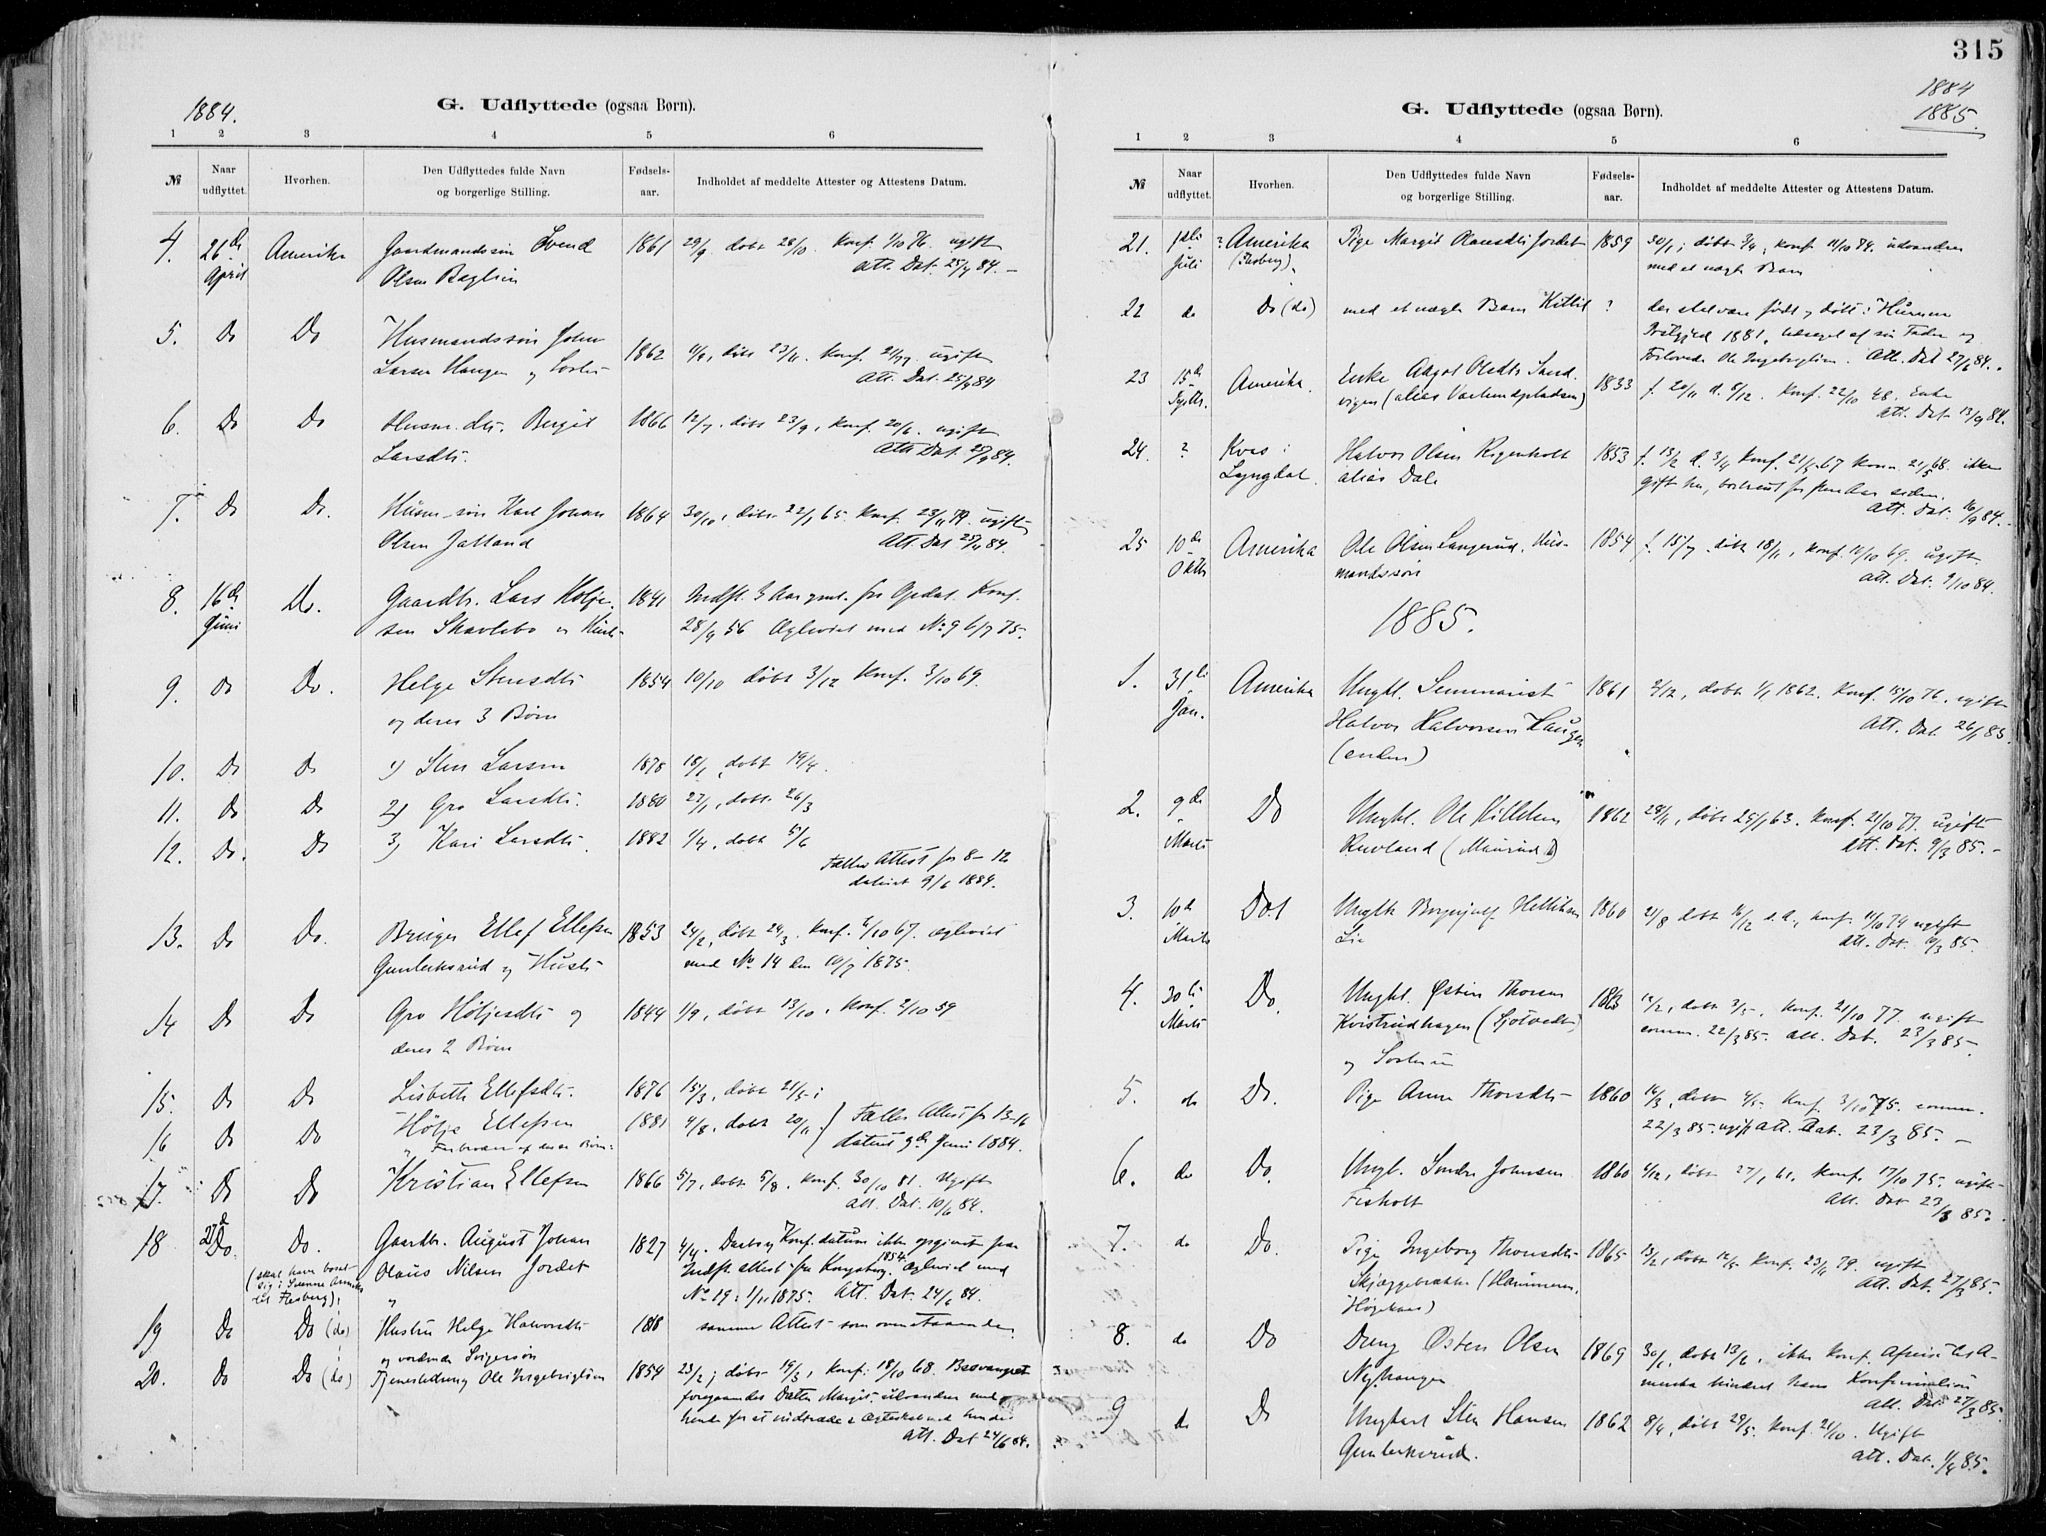 315
1884.
G. Udflyttede (ogsaa Børn).
1 2 3 4 5 6
№
Naar udflyttet.
Hvorhen.
Den Udflyttedes fulde Navn og borgerlige Stilling.
Fødsels-aar.
Indholdet af meddelte Attester og Attestens Datum.
4. 26de April Amerika Gaardmandssøn Svend 1861 29/9 døbt 28/10. Konf. 1/10 76. ugift
Olsen Att. Dat. 25/4 84. —
5. Do Do Husmandssøn John 1862 døbt 23/11. Konf. ugift
Larsen Haugen og Søster Att. Dat. 25/4 84
6. Do Do Husm. dtr. Birgit 1866 12/7. døbt 23/9, Konf. ugift
Larsdtr. Att. Dat. 25/4 84.
7. Do Do. Husm. søn Karl Johan 1864 30/10, døbt 22/1 65. Konf. 23/11 79. ugift
Olsen Jalland Att. Dat. 84.
8. 16de Juni Do. Gaardbr. Lars Holje- 1841 Indfl. 3 Opdal. Konf.
sen Skavlebo og 28/9 56 Ægteviet med No 9 6/7 75.
9. Do Do. Helge Stensdtr 1854 10/10 døbt 3/12 Konf. 3/10 69.
og deres 3 Børn
10. Do Do 1) Sten Larsen 1878 18/1, døbt 19/4.
11. Do Do 2) Gro Larsdtr. 1880 27/1, døbt 26/3
12. Do. Do 3) Kari Larsdtr. 1882 1/4, døbt 5/6
Fælles Attest for 8–12
dateret 9/6 1884.
13. Do Do. Bruger Ellef Ellefsen 1853 24/2, døbt 24/3. Konf. 2/10 67. Ægteviet
Gunleiksrud og Hustr. med No 14 den 10/7 1875.
14 Do Do Gro Holjesdtr og 1844 1/9, døbt 13/10, Konf. 2/10 59
deres 2 Børn
15. Do Do Lisbeth Ellefsdtr. 1876 15/3, døbt 21/5
16 Do Do Holje Ellefsen 1881 4/8, døbt 20/11. Fælles Attest for 13–16
dateret 9de Juni 1884.
17. Do Do Kristian Ellefsen 1866 5/7, døbt 5/8. Konf. 30/10 81. Ugift
Att. Dat. 10/6 84.
18 27de Do. Do. Gaardbr. August Johan 1827 4/4. Daabs og Konf. datum ikke opgivet paa
(skal have boset sig i Flesberg) Olaus Nilsen Jordet Indfl. attest fra Kongsberg. 1854. Ægteviet med
No 19: 1/11 1875. Att. Dat. 24/6 84.
19 Do Do (do) Hustru Helge Halvorsdtr 1818 samme Attest som ovenstaaende.
og vordende Svigersøn
20. Do Do (do) Tjenestedreng Ole Ingebrigtsen 1854 23/2, døbt 19/3, Konf. 18/10 68.
foregaaendes Datter Margit. udvandrer med
hende for at indtræde i Ægteskab med hende
Att. Dat 24/6 84.
G. Udflyttede (ogsaa Børn).
1884
1885.
1 2 3 4 5 6
№
Naar udflyttet.
Hvorhen.
Den Udflyttedes fulde Navn og borgerlige Stilling.
Fødsels-aar.
Indholdet af meddelte Attester og Attestens Datum.
21. Juli ? Amerika Pige Margit Olausdtr Jordet 1859 30/1; døbt 3/4, Konf. 11/10 74. udvandrer
(Flesberg). med et uægte Barn
22 do Do (do) med et uægte Barn Kittil ? der skal være født og døbt i
1881, af sin Fader og
Ole Ingebrigtsen. Att. Dat 27/6 84.
23 15de Septbr. Amerika. Enke Aagot Olsdtr Sand- 1833 f. 20/11 d. 8/12. Konf. 22/10 48. Enke
vigen (alias ) Att. Dat. 13/9 84.
24. ? Kvas i Halvor Olsen Rigenholt 1853 f. 13/2 d. 3/4 Konf. 21/5 67 Konm. 21/5 68. ikke
Lyngdal. alias Dale gift her, bortreist for flere Aar siden.
Att. Dat. 16/9 84.
25 10de Oktbr Amerika Ole Olsen Langerud, Hus- 1854 f. 15/7. døbt 18/11, Konf. 10/10 69. ugift
mandssøn Att. Dat. 9/10 84.
1885.
1. 31te Jan. Amerika Ungk. Seminarist 1861 2/12, døbt 1/1 1862. Konf. 15/10 76, ugift
Halvor Halvorsen Haugen Att. Dat. 26/1 85.
(enden)
2. 9de Marts Do Ungk. Ole Killelsen 1862 28/11, døbt 25/1 63. Konf. 21/10 77. ugift
Ruvland (Maurud) Att. Dat. 9/3 85. —
3. 10de Marts Do Ungk. Helliksen 1860 21/8 døbt 16/12 s.A., Konf. 11/10 74 ugift
Lie Att. Dat. 10/3 85.
4. 30te Marts Do. Ungk. Østen Thorsen 1863 12/2, døbt 3/5, Konf. 21/10 77. ugift
Kvistrudhagen comm. 22/3 85. Att. Dat. 23/3 85.
og Søsteren
5. do Do. Pige Anne Thorsdtr 1860 16/3, døbt 4/5. Konf. 3/10 75. comm.
22/3 85. ugift Att. Dat. 23/3 85. —
6. do Do. Ungk. Sondre Johnsen 1860 4/12, døbt 27/1 61. Konf. 17/10 75. ugift.
Fisholt Att. Dat 23/3 85.
7. do Do. Pige Ingeborg Thorsdtr 1865 13/2, døbt 12/5 Konf. 23/11 79. ugift
Skjæggebrække (Hammeren, Att. Dat. 27/3 85.
8. do Do Dreng Østen Olsen 1869 30/1, døbt 13/2, ikke Konf. Afreise til A-
Nyhaugen merika hindret hans Konfirmation
Att. Dat. 27/3 85.
9 do Do Ungkarl Sten Hansen 1862 8/4, døbt 29/5. Konf. 21/10. Ugift
Gunleiksrud. Att. Dat. 1/4 85.